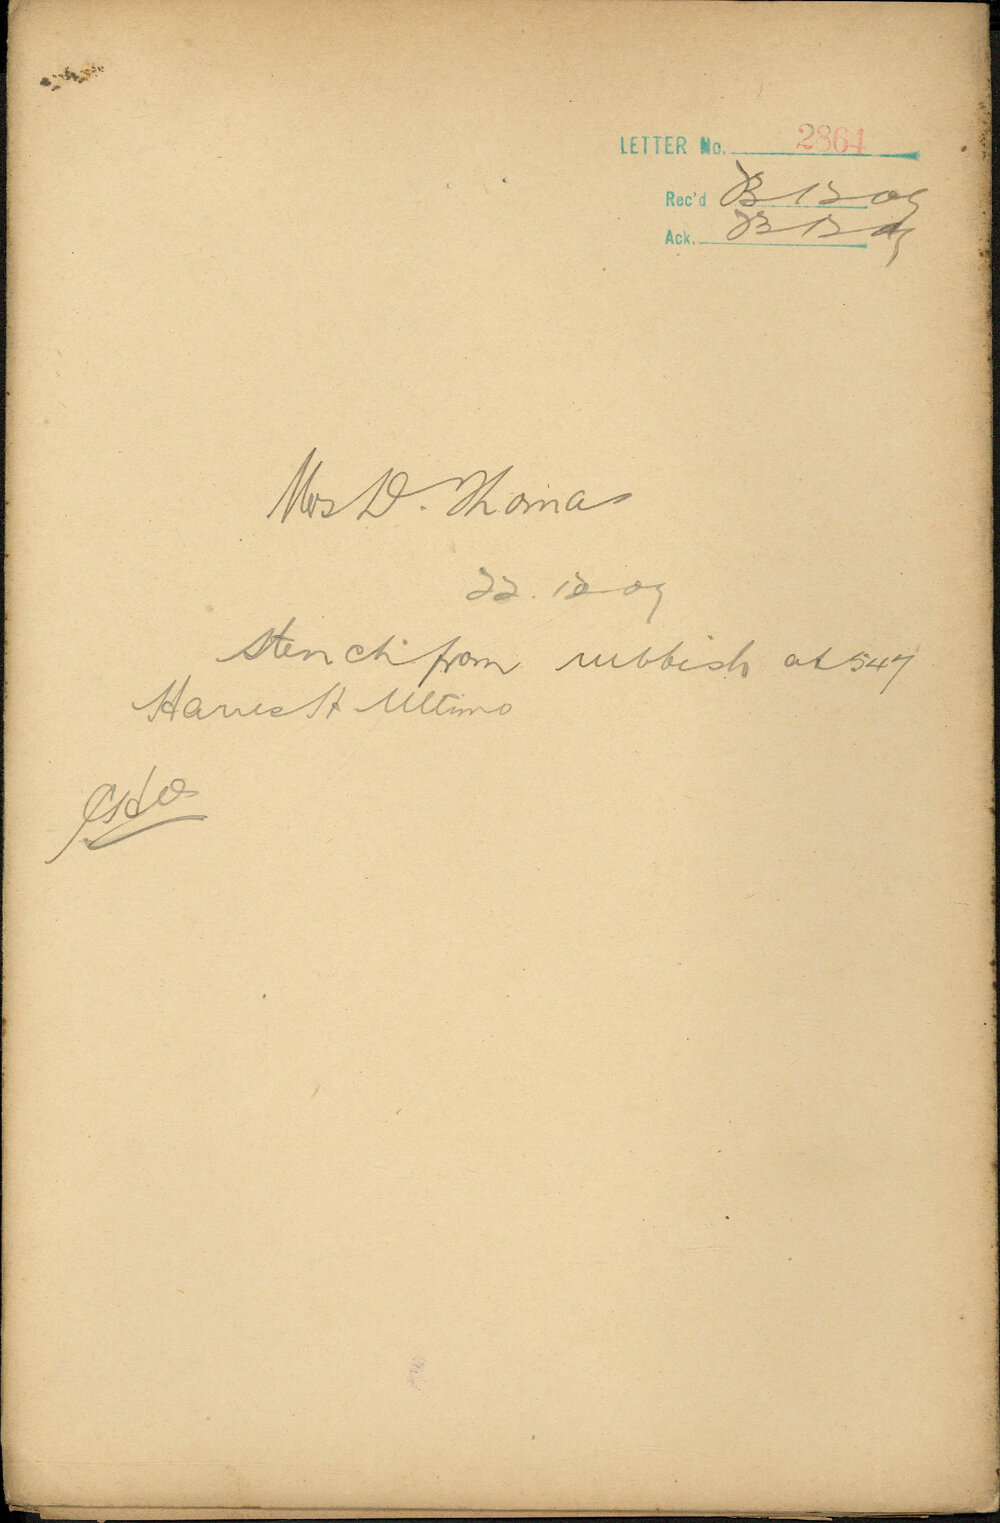 LETTER No. 2364
Rec'd 23 12 09
Ack. 23 12 09
Mrs D. Thomas
22. 12 09
Stench from rubbish at 547
Harris St Ultimo